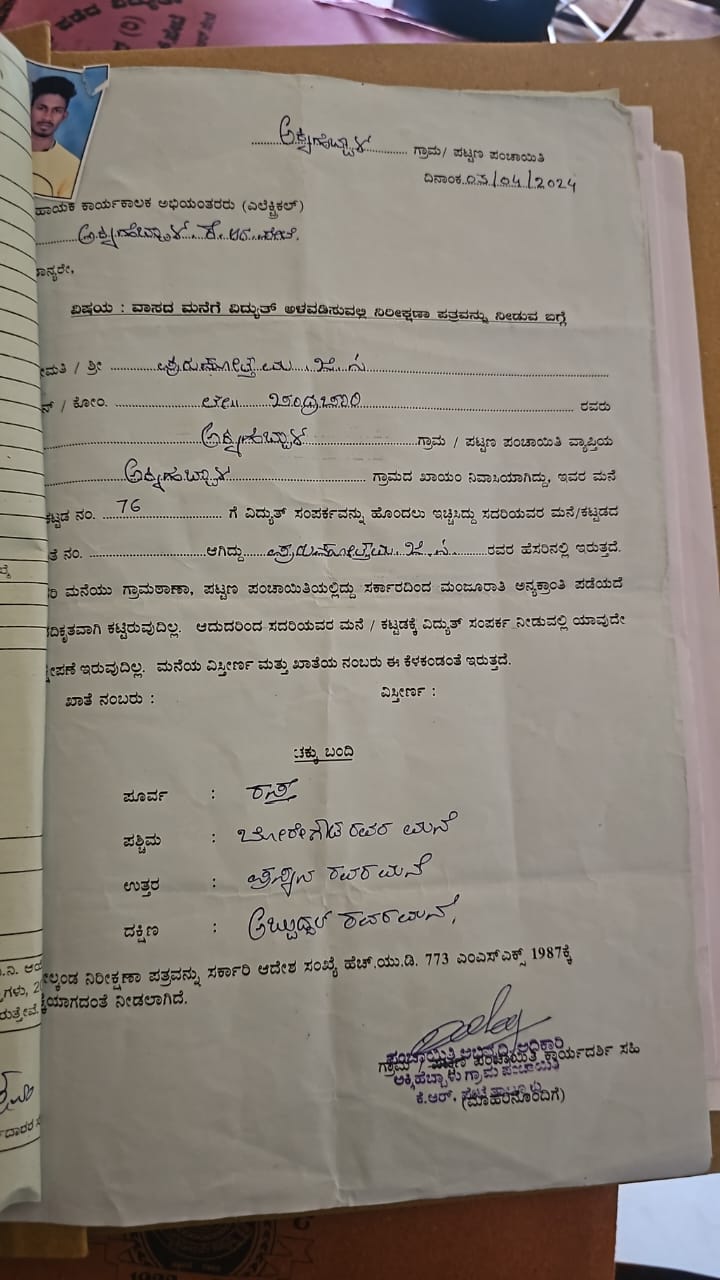 ಅಕ್ಕಿಹೆಬ್ಬಾಳ ಗ್ರಾಮ/ ಪಟ್ಟಣ ಪಂಚಾಯಿತಿ
ದಿನಾಂಕ 03/04/2024
ಹಾಯಕ ಕಾರ್ಯಕಾಲಕ ಅಭಿಯಂತರರು (ಎಲೆಕ್ಟ್ರಿಕಲ್)
ಅಕ್ಕಿಹೆಬ್ಬಾಳ ಕೆ.ಆರ.ಪೇಟೆ.
ಾನ್ಯರೇ,
ವಿಷಯ : ವಾಸದ ಮನೆಗೆ ವಿದ್ಯುತ್ ಅಳವಡಿಸುವಲ್ಲಿ ನಿರೀಕ್ಷಣಾ ಪತ್ರವನ್ನು ನೀಡುವ ಬಗ್ಗೆ
ೀಮತಿ / ಶ್ರೀ ಪುರುಷೋತ್ತಮ ಜೆ.ಸ
ನ್ / ಕೋಂ. ಲೇ|| ರವರು
ಅಕ್ಕಿಹೆಬ್ಬಾಳ ಗ್ರಾಮ / ಪಟ್ಟಣ ಪಂಚಾಯಿತಿ ವ್ಯಾಪ್ತಿಯ
ಅಕ್ಕಿಹೆಬ್ಬಾಳ ಗ್ರಾಮದ ಖಾಯಂ ನಿವಾಸಿಯಾಗಿದ್ದು, ಇವರ ಮನೆ
ಕಟ್ಟಡ ನಂ. 76 ಗೆ ವಿದ್ಯುತ್ ಸಂಪರ್ಕವನ್ನು ಹೊಂದಲು ಇಚ್ಚಿಸಿದ್ದು ಸದರಿಯವರ ಮನೆ/ಕಟ್ಟಡದ
ತೆ ನಂ. ಆಗಿದ್ದು ಪುರುಷೋತ್ತಮ ಜೆ.ಸ ರವರ ಹೆಸರಿನಲ್ಲಿ ಇರುತ್ತದೆ.
ರಿ ಮನೆಯು ಗ್ರಾಮಠಾಣಾ, ಪಟ್ಟಣ ಪಂಚಾಯಿತಿಯಲ್ಲಿದ್ದು ಸರ್ಕಾರದಿಂದ ಮಂಜೂರಾತಿ ಅನ್ಯಕ್ರಾಂತಿ ಪಡೆಯದೆ
ದಿಕೃತವಾಗಿ ಕಟ್ಟಿರುವುದಿಲ್ಲ. ಆದುದರಿಂದ ಸದರಿಯವರ ಮನೆ / ಕಟ್ಟಡಕ್ಕೆ ವಿದ್ಯುತ್ ಸಂಪರ್ಕ ನೀಡುವಲ್ಲಿ ಯಾವುದೇ
್ಷೇಪಣೆ ಇರುವುದಿಲ್ಲ. ಮನೆಯ ವಿಸ್ತೀರ್ಣ ಮತ್ತು ಖಾತೆಯ ನಂಬರು ಈ ಕೆಳಕಂಡಂತೆ ಇರುತ್ತದೆ.
ಖಾತೆ ನಂಬರು : ವಿಸ್ತೀರ್ಣ :
ಚಕ್ಕು ಬಂದಿ
ಪೂರ್ವ : ರಸ್ತೆ
ಪಶ್ಚಿಮ : ಬೋರೇಗೌಡ ರವರ ಮನೆ
ಉತ್ತರ : ರವರ ಮನೆ
ದಕ್ಷಿಣ : ರವರ ಮನೆ.
ೇಲ್ಕಂಡ ನಿರೀಕ್ಷಣಾ ಪತ್ರವನ್ನು ಸರ್ಕಾರಿ ಆದೇಶ ಸಂಖ್ಯೆ ಹೆಚ್.ಯು.ಡಿ. 773 ಎಂಎಸ್ಎಕ್ಸ್ 1987ಕ್ಕೆ
ಕ್ಷೆಯಾಗದಂತೆ ನೀಡಲಾಗಿದೆ.
ಪಂಚಾಯಿತಿ ಅಭಿವೃದ್ಧಿ ಅಧಿಕಾರಿ
ಗ್ರಾಮ / ಪಟ್ಟಣ ಪಂಚಾಯಿತಿ ಕಾರ್ಯದರ್ಶಿ ಸಹಿ
ಅಕ್ಕಿಹೆಬ್ಬಾಳು ಗ್ರಾಮ ಪಂಚಾಯಿತಿ
ಕೆ.ಆರ್. ಪೇಟೆ ತಾಲ್ಲೂಕು
(ಮೊಹರಿನೊಂದಿಗೆ)